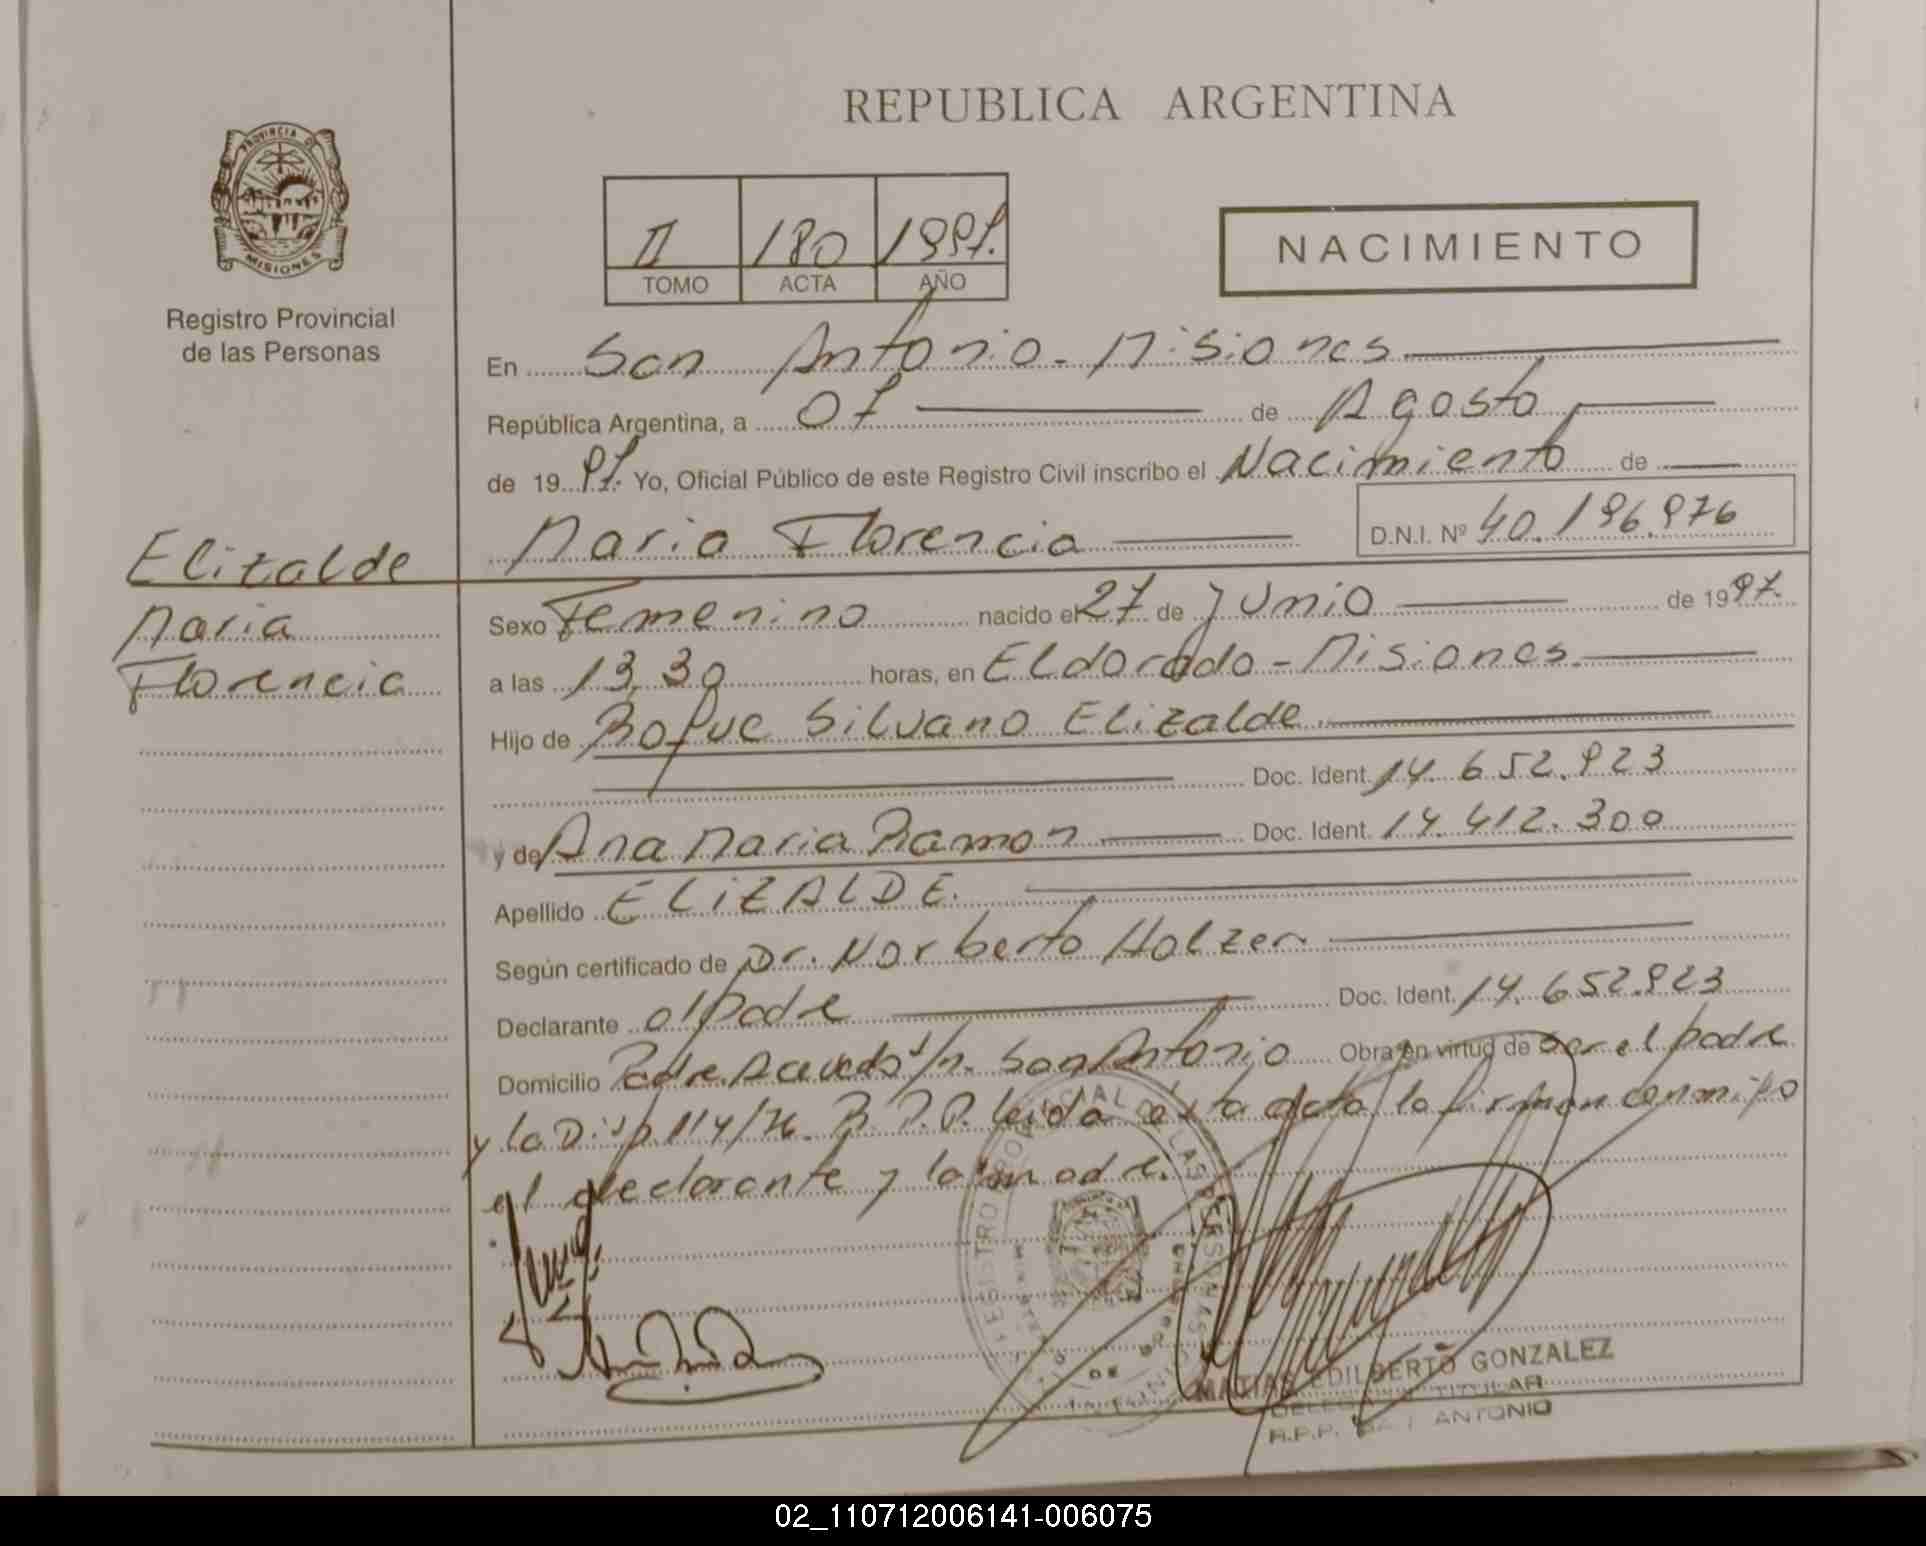 REPUBLICA ARGENTINA
PROVINCIA DE
MISIONES
Registro Provincial
de las Personas
II 180 1997.
TOMO ACTA AÑO
NACIMIENTO
En San Antonio - Misiones
República Argentina, a 07 de Agosto
de 1997. Yo, Oficial Público de este Registro Civil inscribo el Nacimiento de
Maria Florencia D.N.I. Nº 40.196.976
Elizalde
Maria
Florencia
Sexo Femenino nacido el 27 de Junio de 1997.
a las 13,30 horas, en Eldorado - Misiones.
Hijo de Roque Silvano Elizalde
Doc. Ident. 14.652.923
y de Ana Maria Ramon Doc. Ident. 14.412.300
Apellido ELIZALDE.
Según certificado de Dr. Norberto Holzer
Declarante el padre Doc. Ident. 14.652.923
Domicilio Padre Acevedo s/n. San Antonio Obra en virtud de ser el padre
y la Disp. 114/76. R.P.P. leida esta acta la firman conmigo
el declarante y la madre.
REGISTRO PROVINCIAL DE LAS PERSONAS
MATIAS EDILBERTO GONZALEZ
DELEGADO TITULAR
R.P.P. ANTONIO
02_110712006141-006075